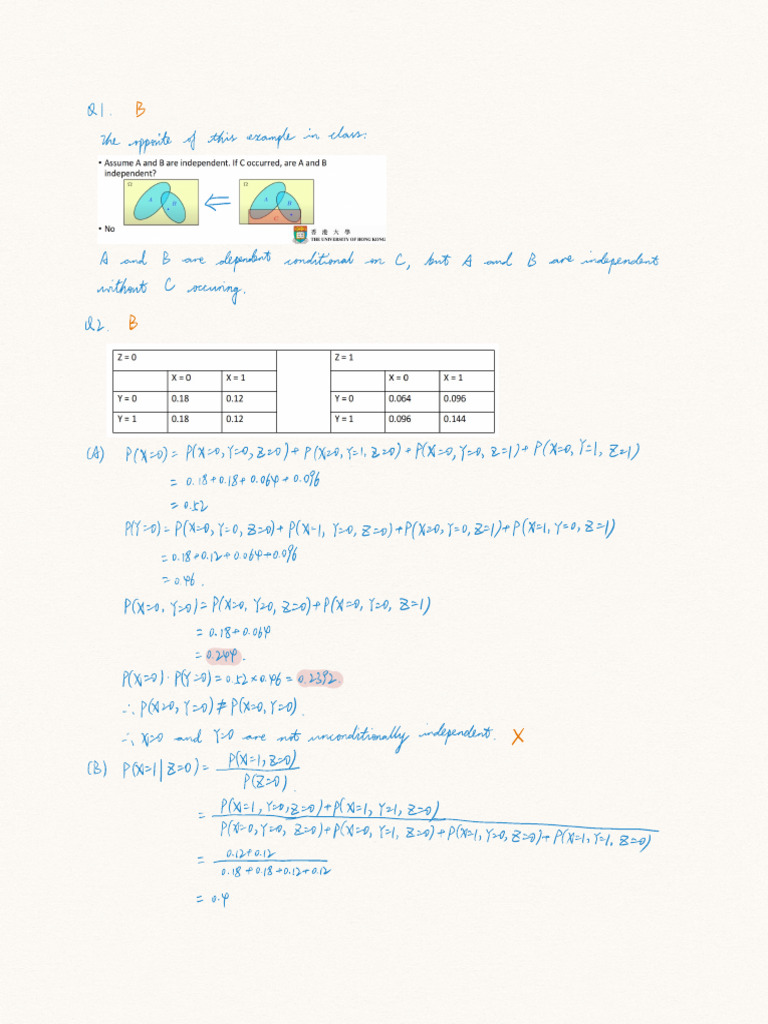 Q1. B
The opposite of this example in class:
• Assume A and B are independent. If C occurred, are A and B
independent?
Ω Ω
A B A B
C
• No
香港大學
THE UNIVERSITY OF HONG KONG
A and B are dependent conditional on C, but A and B are independent
without C occuring.
Q2. B
Z = 0 Z = 1
X = 0 X = 1 X = 0 X = 1
Y = 0 0.18 0.12 Y = 0 0.064 0.096
Y = 1 0.18 0.12 Y = 1 0.096 0.144
(A) P(X=0) = P(X=0, Y=0, Z=0) + P(X=0, Y=1, Z=0) + P(X=0, Y=0, Z=1) + P(X=0, Y=1, Z=1)
= 0.18+0.18+0.064+0.096
= 0.52
P(Y=0) = P(X=0, Y=0, Z=0) + P(X=1, Y=0, Z=0) + P(X=0, Y=0, Z=1) + P(X=1, Y=0, Z=1)
= 0.18+0.12+0.064+0.096
= 0.46.
P(X=0, Y=0) = P(X=0, Y=0, Z=0) + P(X=0, Y=0, Z=1)
= 0.18+0.064
= 0.244.
P(X=0) · P(Y=0) = 0.52 × 0.46 = 0.2392.
∴ P(X=0, Y=0) ≠ P(X=0, Y=0).
∴ X=0 and Y=0 are not unconditionally independent. X
(B) P(X=1 | Z=0) = P(X=1, Z=0)
P(Z=0).
= P(X=1, Y=0, Z=0) + P(X=1, Y=1, Z=0)
P(X=0, Y=0, Z=0) + P(X=0, Y=1, Z=0) + P(X=1, Y=0, Z=0) + P(X=1, Y=1, Z=0)
= 0.12+0.12
0.18+0.18+0.12+0.12
= 0.4